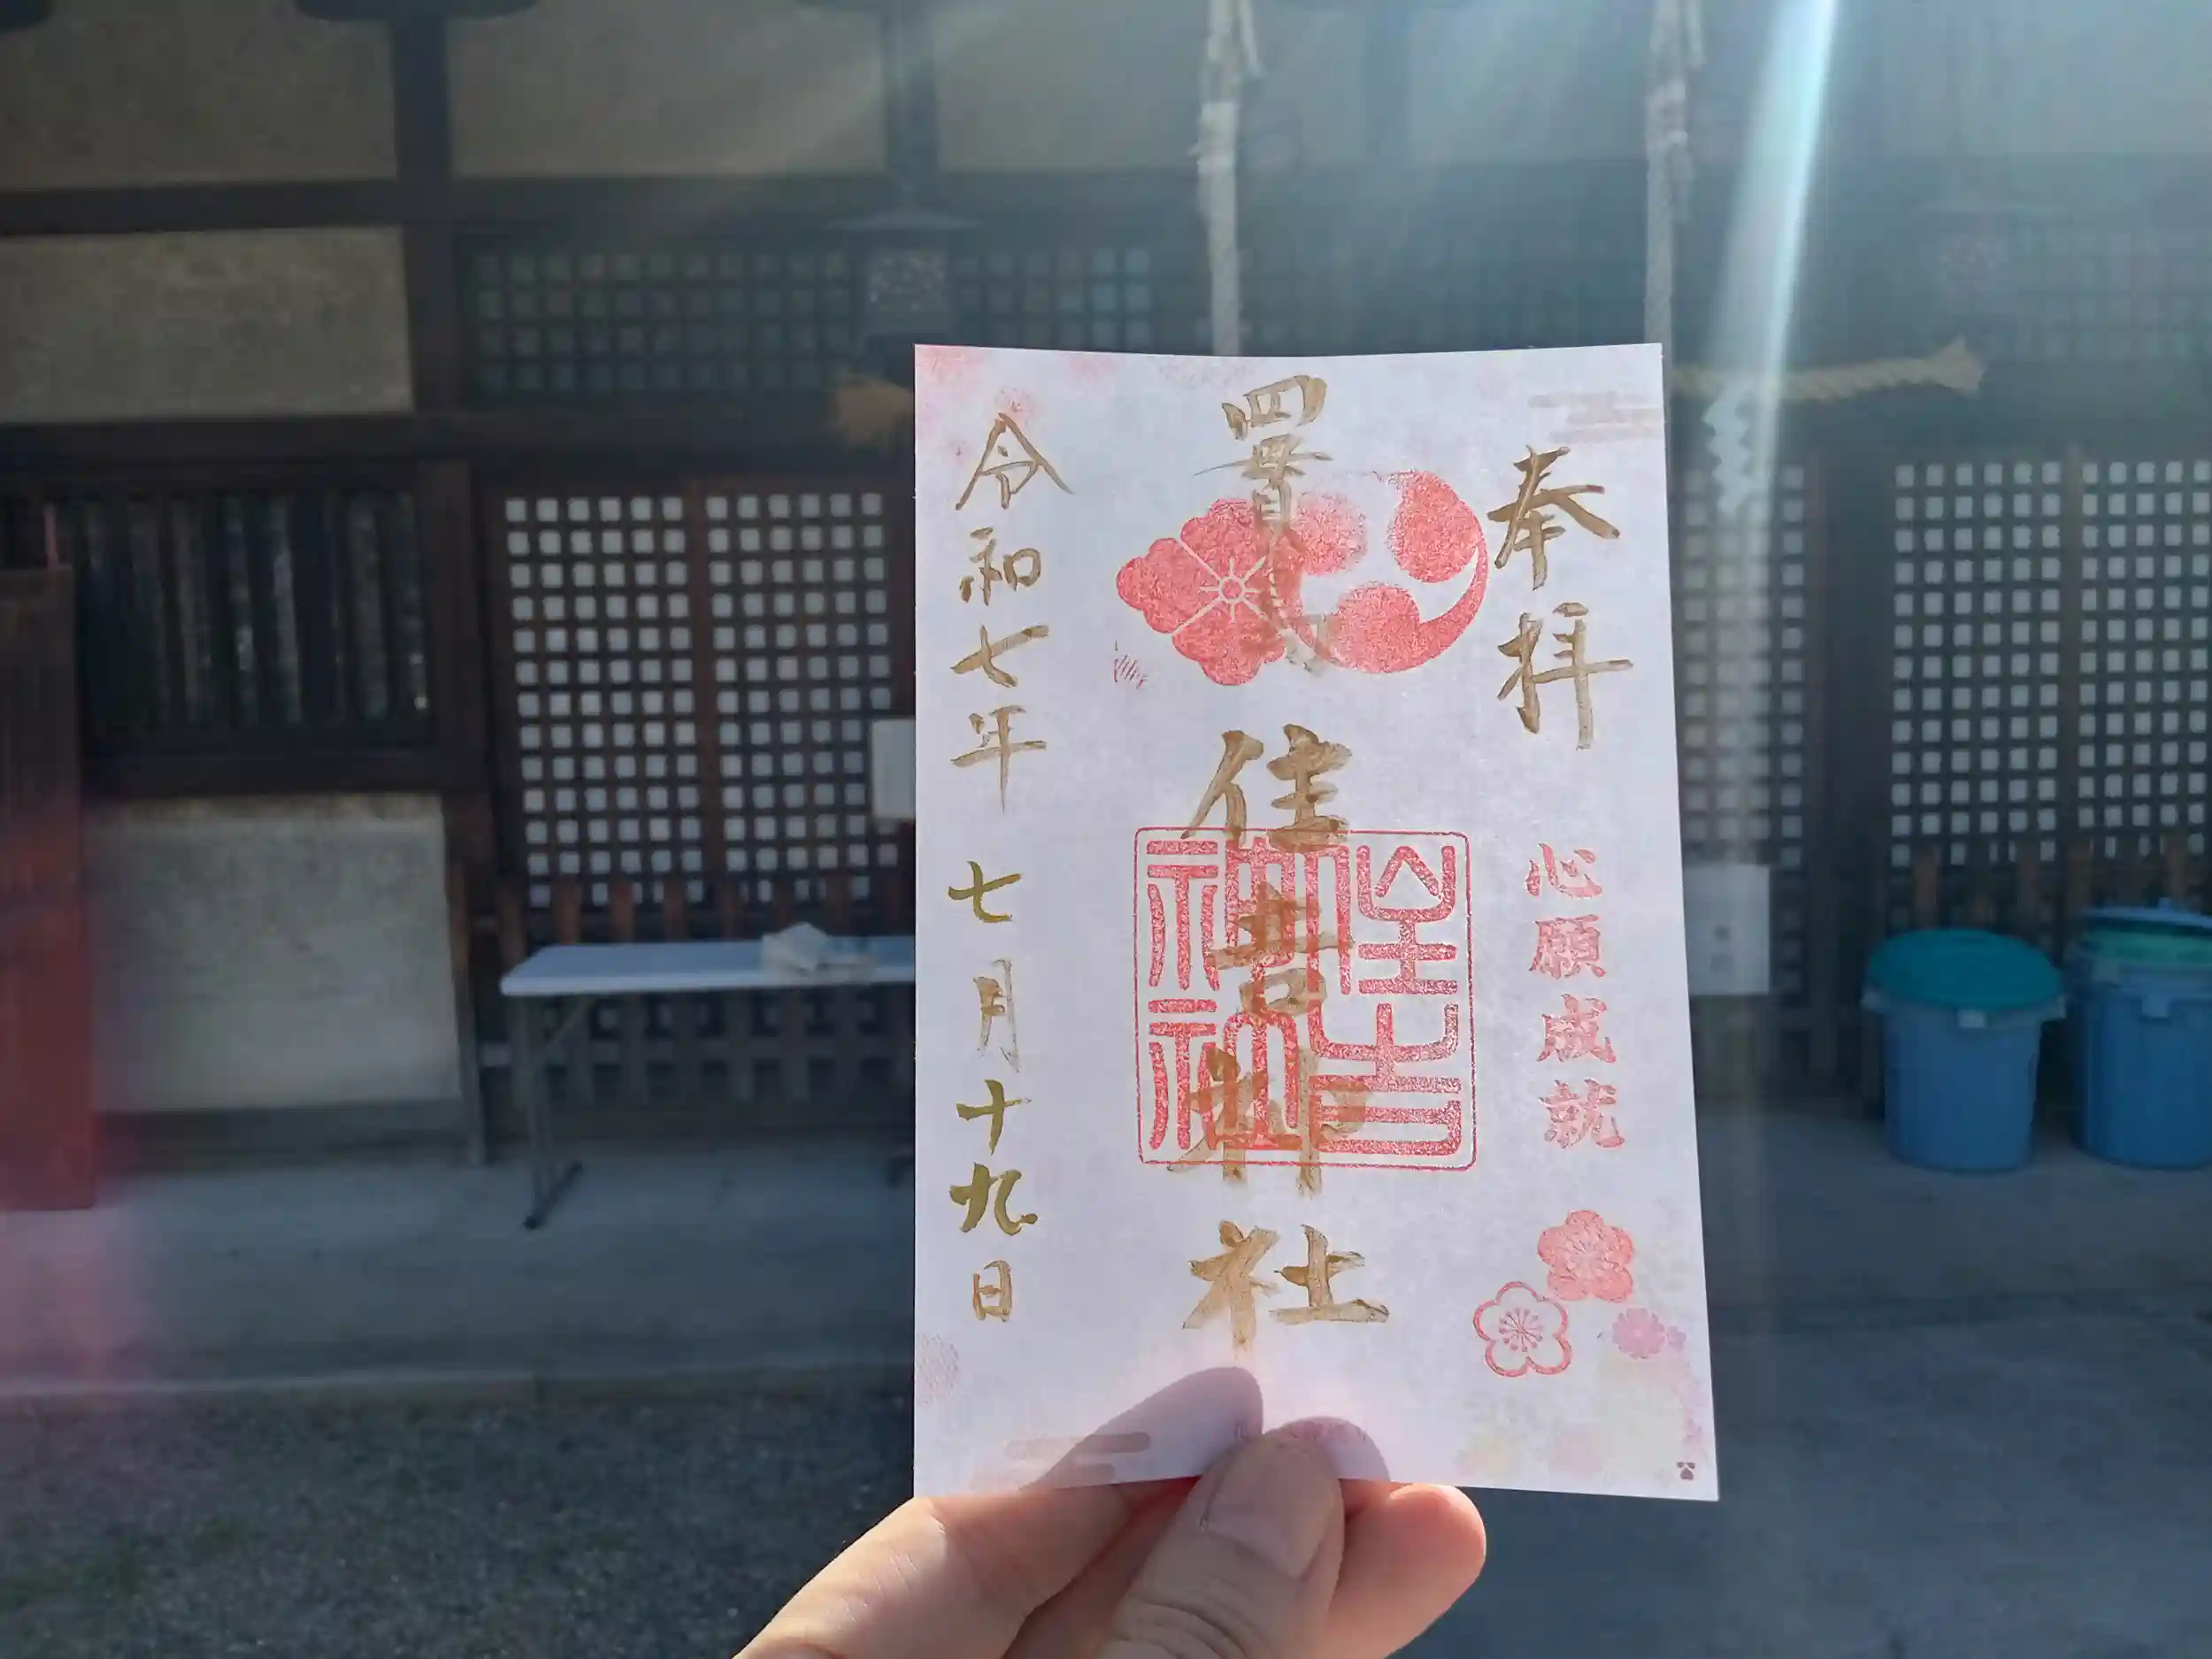 奉拝
心願成就
四貫島
住吉神社
住吉
神社
令和七年 七月十九日